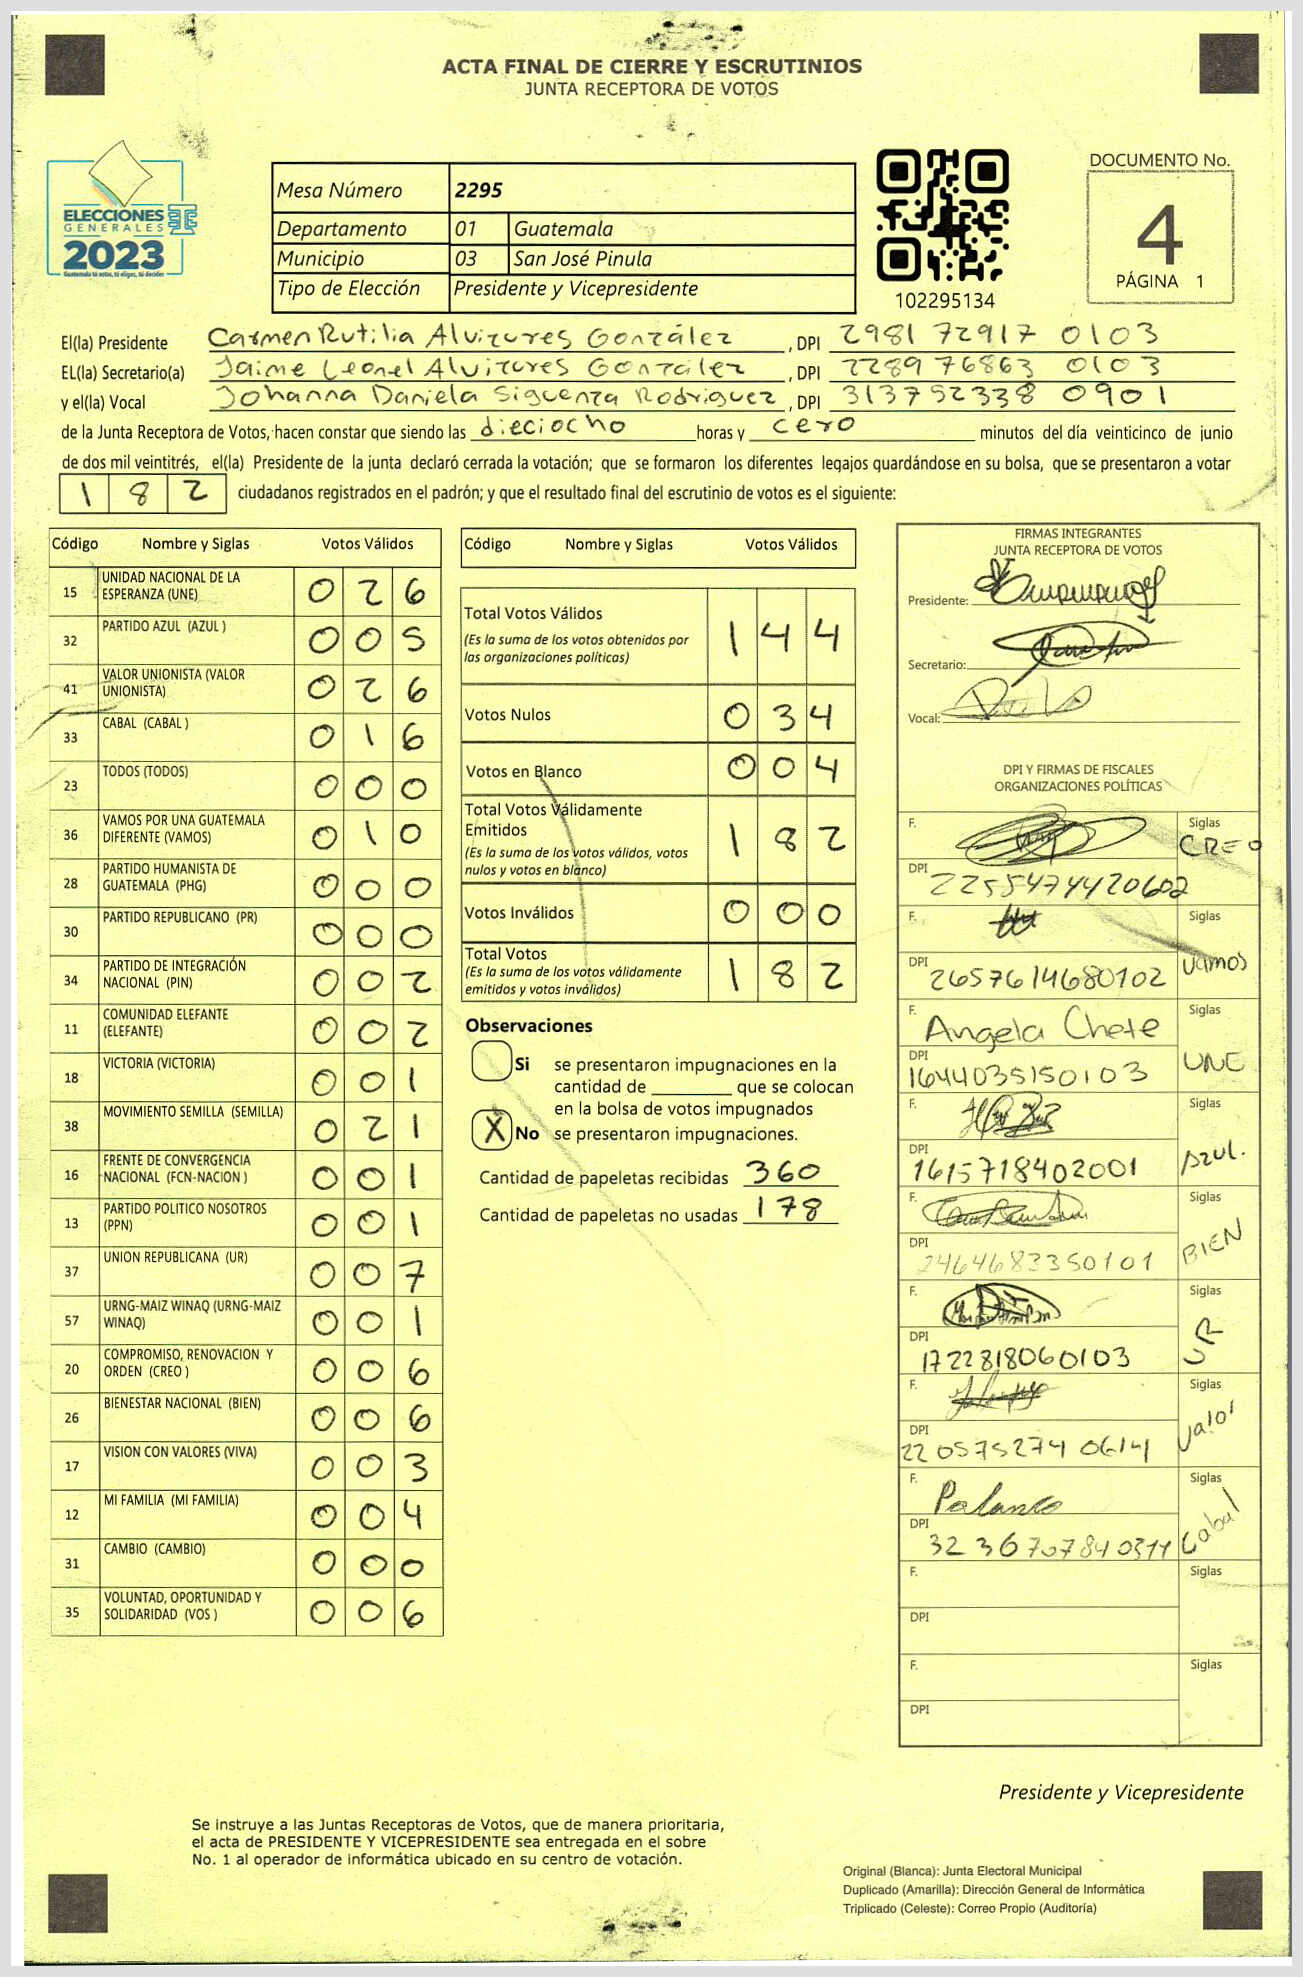 ACTA FINAL DE CIERRE Y ESCRUTINIOS
JUNTA RECEPTORA DE VOTOS
ELECCIONES
GENERALES
2023
Guatemala tú votas, tú eliges, tú decides
Mesa Número 2295
Departamento 01 Guatemala
Municipio 03 San José Pinula
Tipo de Elección Presidente y Vicepresidente
102295134
DOCUMENTO No.
4
PÁGINA 1
El(la) Presidente Carmen Rutilia Alvizures González, DPI 2981 72917 0103
EL(la) Secretario(a) Jaime Leonel Alvizures González, DPI 2289 76863 0103
y el(la) Vocal Johanna Daniela Siguenza Rodriguez, DPI 313752338 0901
de la Junta Receptora de Votos, hacen constar que siendo las dieciocho horas y cero minutos del día veinticinco de junio
de dos mil veintitrés, el(la) Presidente de la junta declaró cerrada la votación; que se formaron los diferentes legajos guardándose en su bolsa, que se presentaron a votar
182 ciudadanos registrados en el padrón; y que el resultado final del escrutinio de votos es el siguiente:
Código Nombre y Siglas Votos Válidos
15 UNIDAD NACIONAL DE LA ESPERANZA (UNE) 026
32 PARTIDO AZUL (AZUL ) 005
41 VALOR UNIONISTA (VALOR UNIONISTA) 026
33 CABAL (CABAL ) 016
23 TODOS (TODOS) 000
36 VAMOS POR UNA GUATEMALA DIFERENTE (VAMOS) 010
28 PARTIDO HUMANISTA DE GUATEMALA (PHG) 000
30 PARTIDO REPUBLICANO (PR) 000
34 PARTIDO DE INTEGRACIÓN NACIONAL (PIN) 002
11 COMUNIDAD ELEFANTE (ELEFANTE) 002
18 VICTORIA (VICTORIA) 001
38 MOVIMIENTO SEMILLA (SEMILLA) 021
16 FRENTE DE CONVERGENCIA NACIONAL (FCN-NACION ) 001
13 PARTIDO POLITICO NOSOTROS (PPN) 001
37 UNION REPUBLICANA (UR) 007
57 URNG-MAIZ WINAQ (URNG-MAIZ WINAQ) 001
20 COMPROMISO, RENOVACION Y ORDEN (CREO ) 006
26 BIENESTAR NACIONAL (BIEN) 006
17 VISION CON VALORES (VIVA) 003
12 MI FAMILIA (MI FAMILIA) 004
31 CAMBIO (CAMBIO) 000
35 VOLUNTAD, OPORTUNIDAD Y SOLIDARIDAD (VOS ) 006
Código Nombre y Siglas Votos Válidos
Total Votos Válidos 144
(Es la suma de los votos obtenidos por
las organizaciones políticas)
Votos Nulos 034
Votos en Blanco 004
Total Votos Válidamente
Emitidos 182
(Es la suma de los votos válidos, votos
nulos y votos en blanco)
Votos Inválidos 000
Total Votos 182
(Es la suma de los votos válidamente
emitidos y votos inválidos)
Observaciones
Si se presentaron impugnaciones en la
cantidad de ________ que se colocan
en la bolsa de votos impugnados
X No se presentaron impugnaciones.
Cantidad de papeletas recibidas 360
Cantidad de papeletas no usadas 178
FIRMAS INTEGRANTES
JUNTA RECEPTORA DE VOTOS
Presidente:
Secretario:
Vocal:
DPI Y FIRMAS DE FISCALES
ORGANIZACIONES POLÍTICAS
F. Siglas CREO
DPI 2255474420602
F. Siglas Vamos
DPI 2657614680102
F. Angela Chete Siglas UNE
DPI 1644035150103
F. Siglas Azul.
DPI 1615718402001
F. Siglas BIEN
DPI 2464683350101
F. Siglas UR
DPI 1722818060103
F. Siglas Valor
DPI 220575274 0614
F. Polanco Siglas Cabal
DPI
F. Siglas
DPI
F. Siglas
DPI
Presidente y Vicepresidente
Se instruye a las Juntas Receptoras de Votos, que de manera prioritaria,
el acta de PRESIDENTE Y VICEPRESIDENTE sea entregada en el sobre
No. 1 al operador de informática ubicado en su centro de votación.
Original (Blanca): Junta Electoral Municipal
Duplicado (Amarilla): Dirección General de Informática
Triplicado (Celeste): Correo Propio (Auditoría)